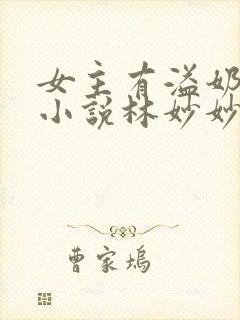 女主有溢奶
小说林妙妙
曹家坞